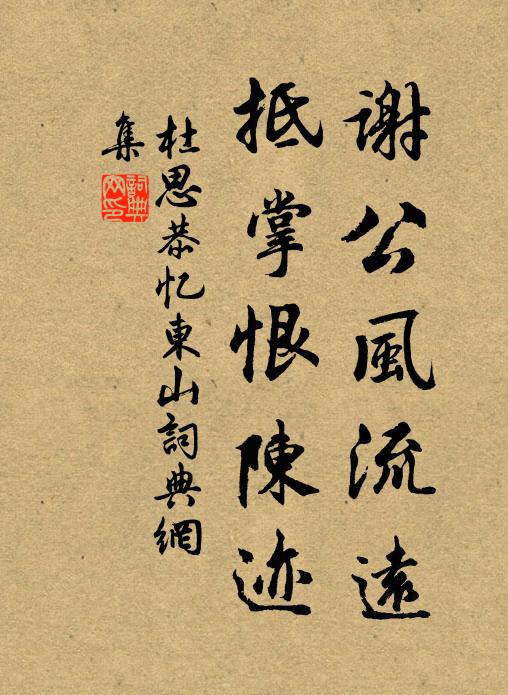 謝公風流遠
抵掌恨陳迹
杜思恭忆東山詞典網
集
詞典网印